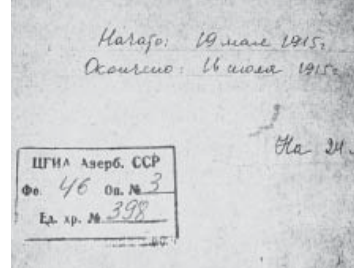 Начато: 19 мая 1915г
Окончено: 16 июля 1915г
На 24
ЦГИА Азерб. ССР
Фо. 46 Оп. № 3
Ед. хр. № 398